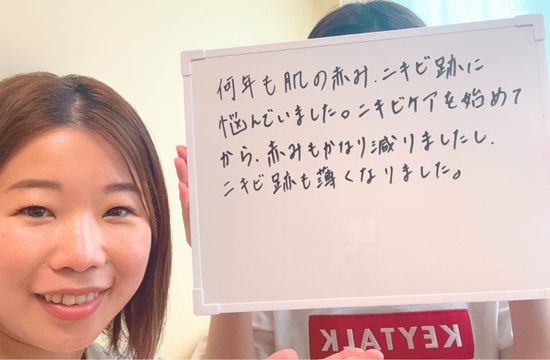 何年も肌の赤み、ニキビ跡に
悩んでいました。ニキビケアを始めて
から、赤みもかなり減りましたし、
ニキビ跡も薄くなりました。
KEYTALK